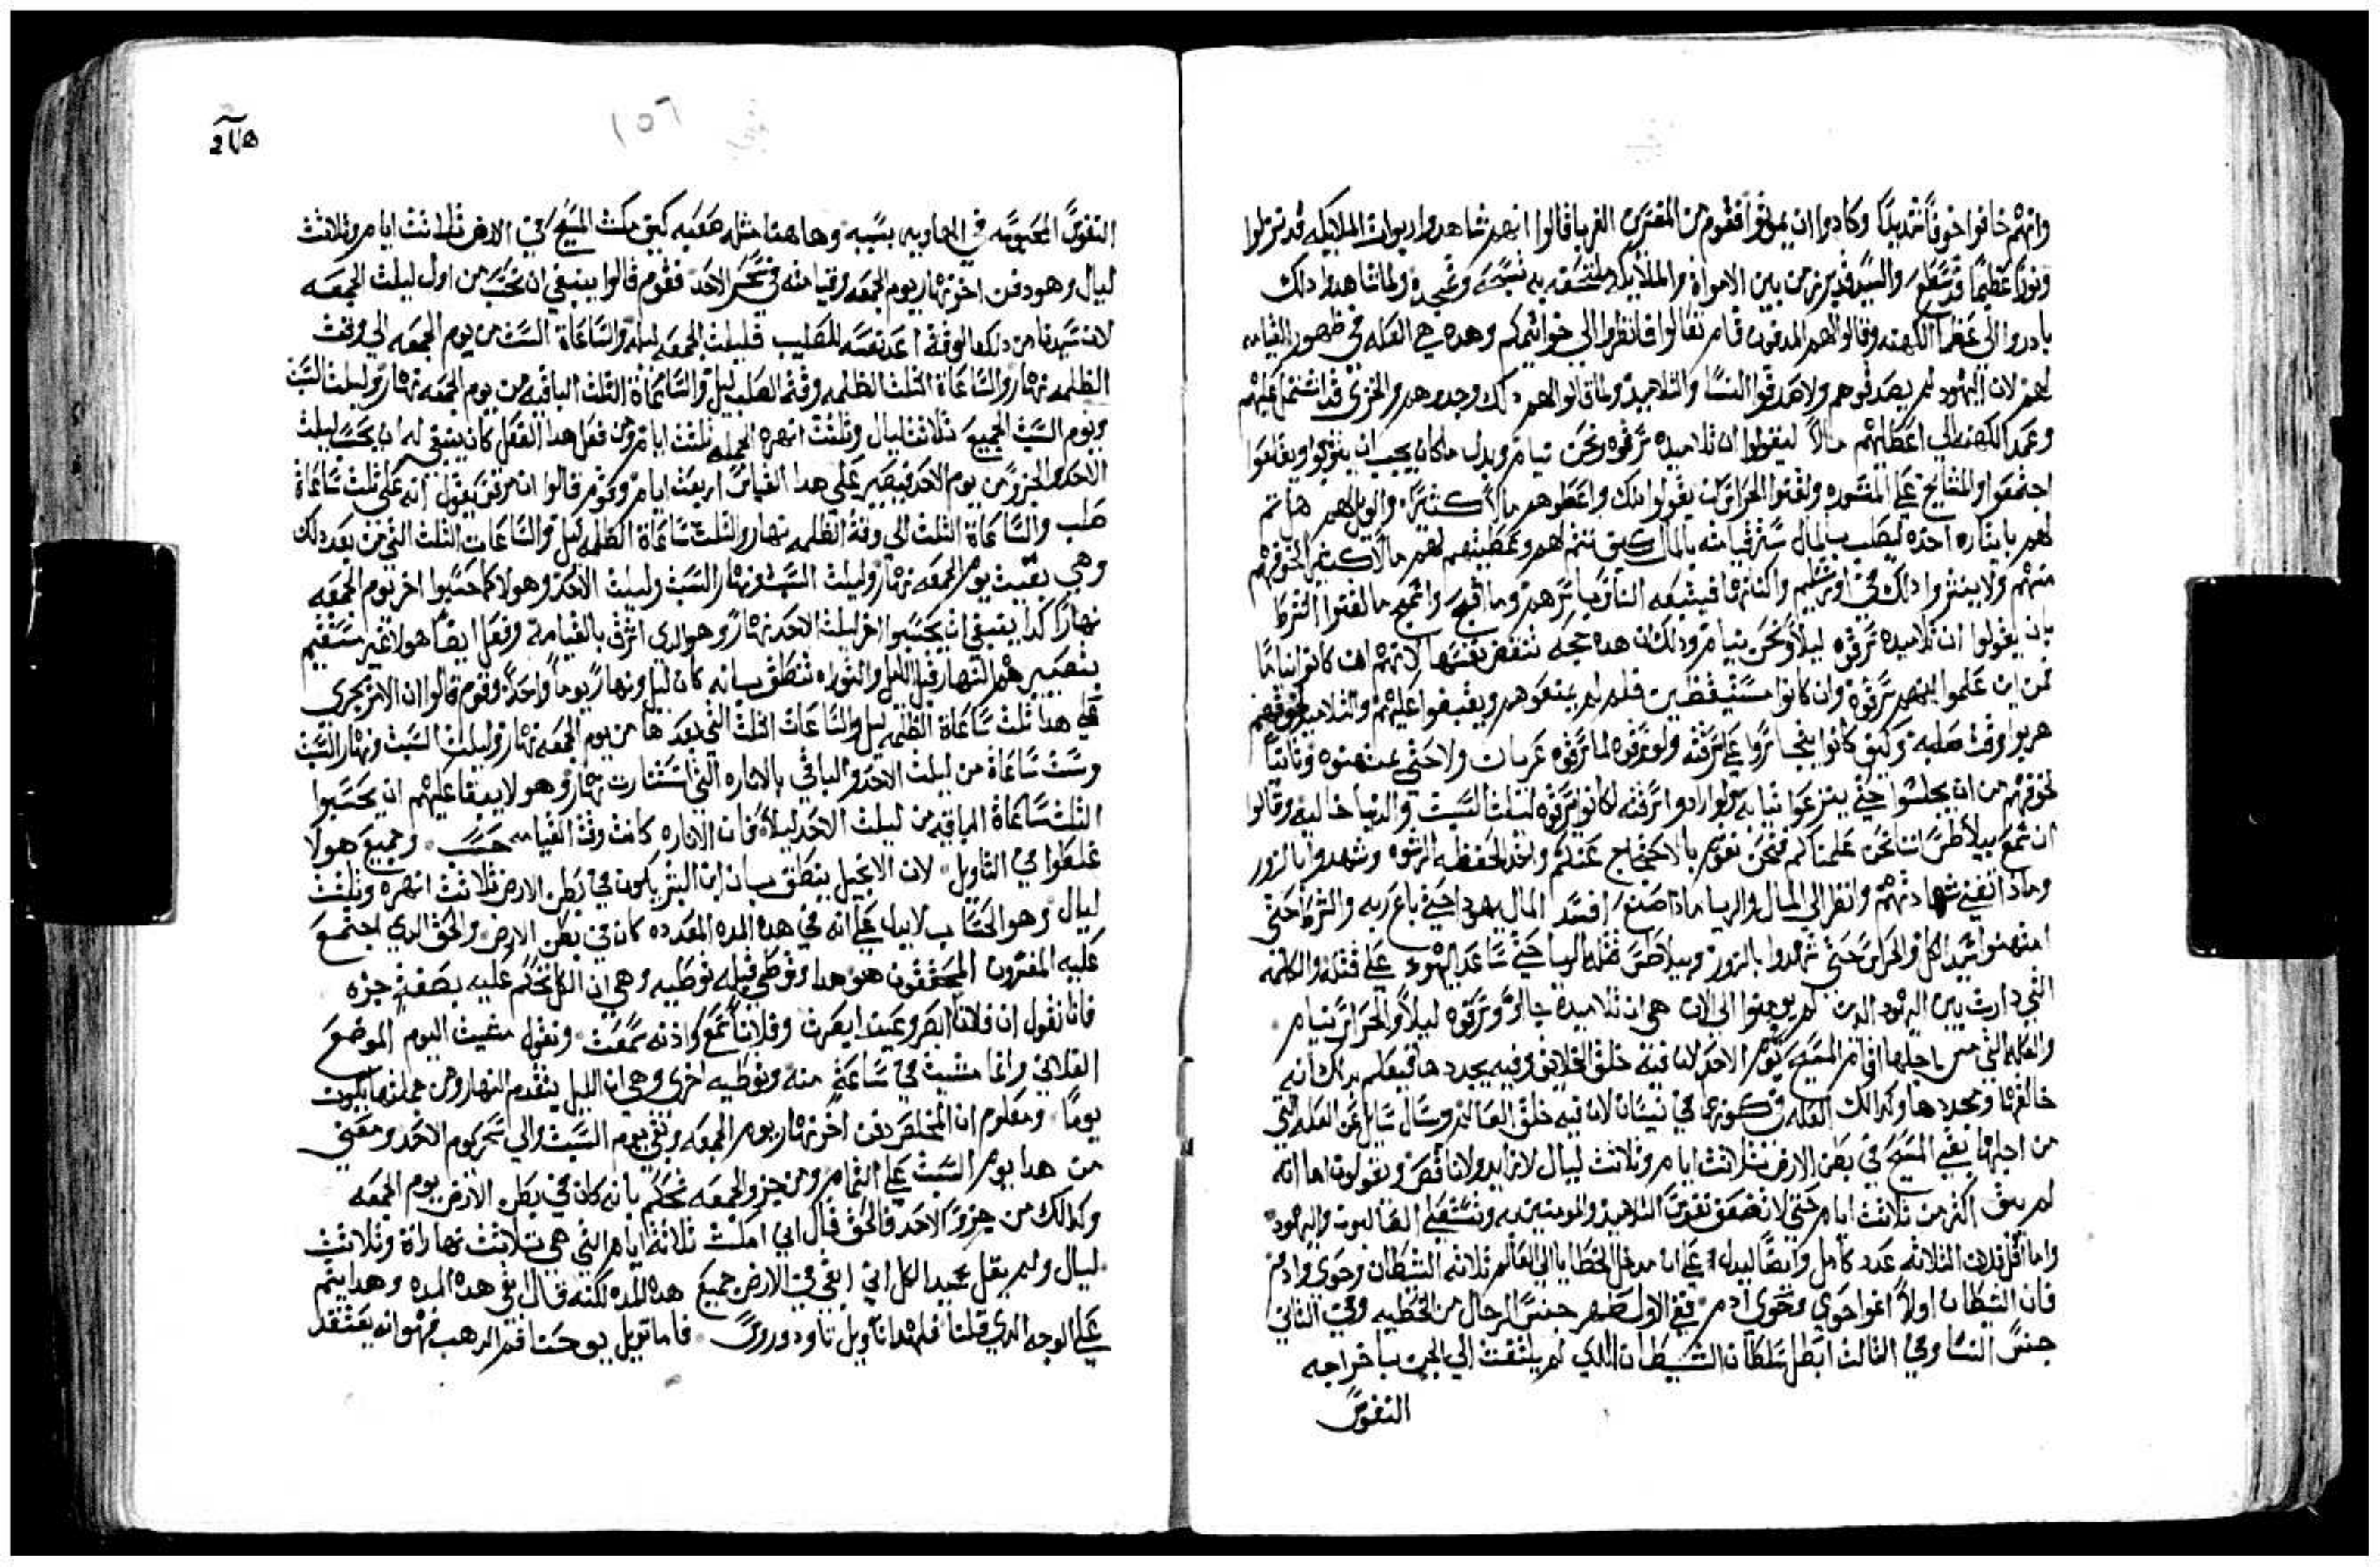 وانهم خافوا خوفاً شديداً وكادوا ان يموتوا فقوم من المفسرين الغربا قالوا انهم شاهدوا ديوان الملايكه قد نزلوا
ونوراً عظيماً قد سطع والسيد قد برز من بين الاموات والملايكه ملتسقه به تسبحه وتمجده ولما شاهدوا دلك
بادروا الي عظما الكهنه وقالوا لهم المدفون قام تعالوا فانظروا الي خواتمكم وهده هي العله في ظهور القيامه
لهم لان اليهود لم يصدقوهم ولا صدقوا النسا والتلاميد ولما قالوا لهم دلك وجدوهم والخزي قد اشتمل عليهم
وعمد الكهنه الي اعطايهم مالاً ليقولوا ان تلاميده سرقوه ونحن نيام وبدل ماكان يجب ان يتوبوا ويقلعوا
اجتمعوا والمشايخ علي المشوره ولقنوا الحراس ان يقولوا دلك واعطوهم مالاً كثيراً والويل لهم
منهم ولا ينشروا دلك في اورشليم واكنافها فيتبعه الناس باسرهم وما اقبح واسمج ما لقنوا الشرط
بان يقولوا ان تلاميده سرقوه ليلاً ونحن نيام ودلك ان هده حجه تنقض نفسها لانهم ان كانوا نياماً
فمن اين علموا انهم سرقوه وان كانوا مستيقظين فلم لم يمنعوهم ويقبضوا عليهم والتلاميد لخوفهم
هربوا وقت صلبه وكيف كانوا يتجاسروا علي سرقته ولو سرقوه لما سرقوه عريان ولا حتي
لخوفهم من ان يجلسوا حتي ينزعوا ثيابه ولو ارادوا سرقته لكانوا سرقوه ليلت السبت والدنيا خاليه وقالوا
ان سمع بيلاطس اننا نحن علمناكم فنحن نقوم بالاحتجاج عنكم واخد الحفظه الرشوه وشهدوا بالزور
وماذا تغني شهادتهم وانظر الي المال والريا مادا صنع افسد المال يهودا حتي باع ربه والشرط حتي
امتهنوا سيد الكل والحراس حتي شهدوا بالزور وبيلاطس فعله الريا حتي ساعد اليهود علي قتله والكلمه
التي دارت بين اليهود الدين لم يومنوا الي الان هي ان تلاميده جاؤ وسرقوه ليلاً والحراس نيام
والعله التي من اجلها اقام المسيح يوم الاحد لان فيه خلق الخلايق وفيه يجددها فيعلم بدلك انه
خالقها ومجددها وكدالك العله في كونها في نيسان لان فيه خلق العالم وسال سايل عن العله التي
من اجلها بقي المسيح في بطن الارض ثلاثت ايام وثلاثت ليال لا زايد ولا ناقص ونقول اما انه
لم يبق اكثر من ثلاثت ايام حتي لا تضعف نفوس التلاميد والمومنين به وتستعلي الصالبون واليهود
واما اقل فلان الثلاثه عدد كامل وايضاً ليدل علي ان مدخل الخطايا الي العالم ثلاثه الشطان وحوي وادم
فان الشطان اولاً اغوا حوي وحوي ادم ففي الاول طهر جنس الرجال من الخطيه وفي الثاني
جنس النسا وفي الثالث ابطل سلطان الشيطان الدي لم يلتفت الي الجن باخراجه
النفوس
١٥٦
النفوس المحبوسه في الهاويه بسببه وهاهنا مثله صعبه كيف مكث المسيح في الارض ثلاثت ايام وثلاثت
ليال وهو دفن اخر نهار يوم الجمعه وقيامته في سحر الاحد فقوم قالوا ينبغي ان تحتسب من اول ليلت الجمعه
لان سيدنا من دلك الوقت اعد نفسه للصليب فليلت الجمعه ليله والساعاة الست من يوم الجمعه الي وقت
الظلمه نهار والساعاة الثلث الظلمه وقت الصلب ليل والساعاة الثلث الباقيه من يوم الجمعه نهار وليلت السبت
ويوم السبت الجميع ثلاثت ليال وثلثت انهره الجمله ثلثت ايام ومن فعل هدا الفعل كان ينبغي له ان يحسب ليلت
الاحد والجزو من يوم الاحد فيصير علي هدا القياس اربعت ايام وقوم قالوا ان مرقس يقول انه علي ثلث ساعاة
صلب والساعاة الثلث الي وقت الظلمه نهار والثلث ساعاة الظلمه ليل والساعات الثلث التي من بعد دلك
وهي بقيت يوم الجمعه نهار وليلت السبت ونهار السبت وليلت الاحد وهولا كما حسبوا اخر يوم الجمعه
نهاراً كدا ينبغي ان يحسبوا اخر ليلت الاحد نهار وهو الدي اشرق بالقيامه وفعل ايضاً هولا غير مستقيم
بتصييرهم النهار قبل الليل والتوراه تنطق بانه كان ليل ونهار يوماً واحداً وقوم قالوا ان الامر يجري
هدا ثلث ساعاة الظلمه ليل والساعات الثلث التي بعدها من يوم الجمعه نهار وليلت السبت ونهار السبت
وست ساعاة من ليلت الاحد والباقي بالاناره التي استنارت نهار وهولا يبقا عليهم ان يحسبوا
الثلث ساعاة الباقيه من ليلت الاحد ليلاً فان الاناره كانت وقت القيامه حسب وجميع هولا
غلطوا في التاويل لان الانجيل ينطق بان ابن البشر يكون في بطن الارض ثلاثت انهره وثلثت
ليال وهو الحساب لا يدل علي انه في هده المده المعدده كان في بطن الارض والحق الدي اجتمع
عليه المفسرون المحققون هو هدا ونوطي قبله توطيه وهي ان الكل نحكم عليه بصفة جزه
فانا نقول ان فلاناً ابصر وعينه ابصرت وفلاناً سمع واذنه سمعت ونقول مشيت اليوم الموضع
الفلاني وانما مشيت في ساعة منه وتوطيه اخري وهي ان الليل يتقدم النهار ومن جملتهما يكون
يوماً ومعلوم ان المخلص دفن اخر نهار يوم الجمعه وبقي يوم السبت والي سحر يوم الاحد ومعني
من هدا يوم السبت علي التمام ومن جزو الجمعه نحكم بانه كان في بطن الارض يوم الجمعه
وكدالك من جزو الاحد فالحق قال اني امكث ثلاثة ايام التي هي ثلاثت نهاراة وثلاثت
ليال ولم يقل سيد الكل اني ابقي في الارض جميع هده المده لكنه قال ابقي هده المده وهدا يتم
علي الوجه الدي قلنا فلهدا تاويل تاودوروس فاما تويل يوحنا فم الدهب فهو انه يعتقد